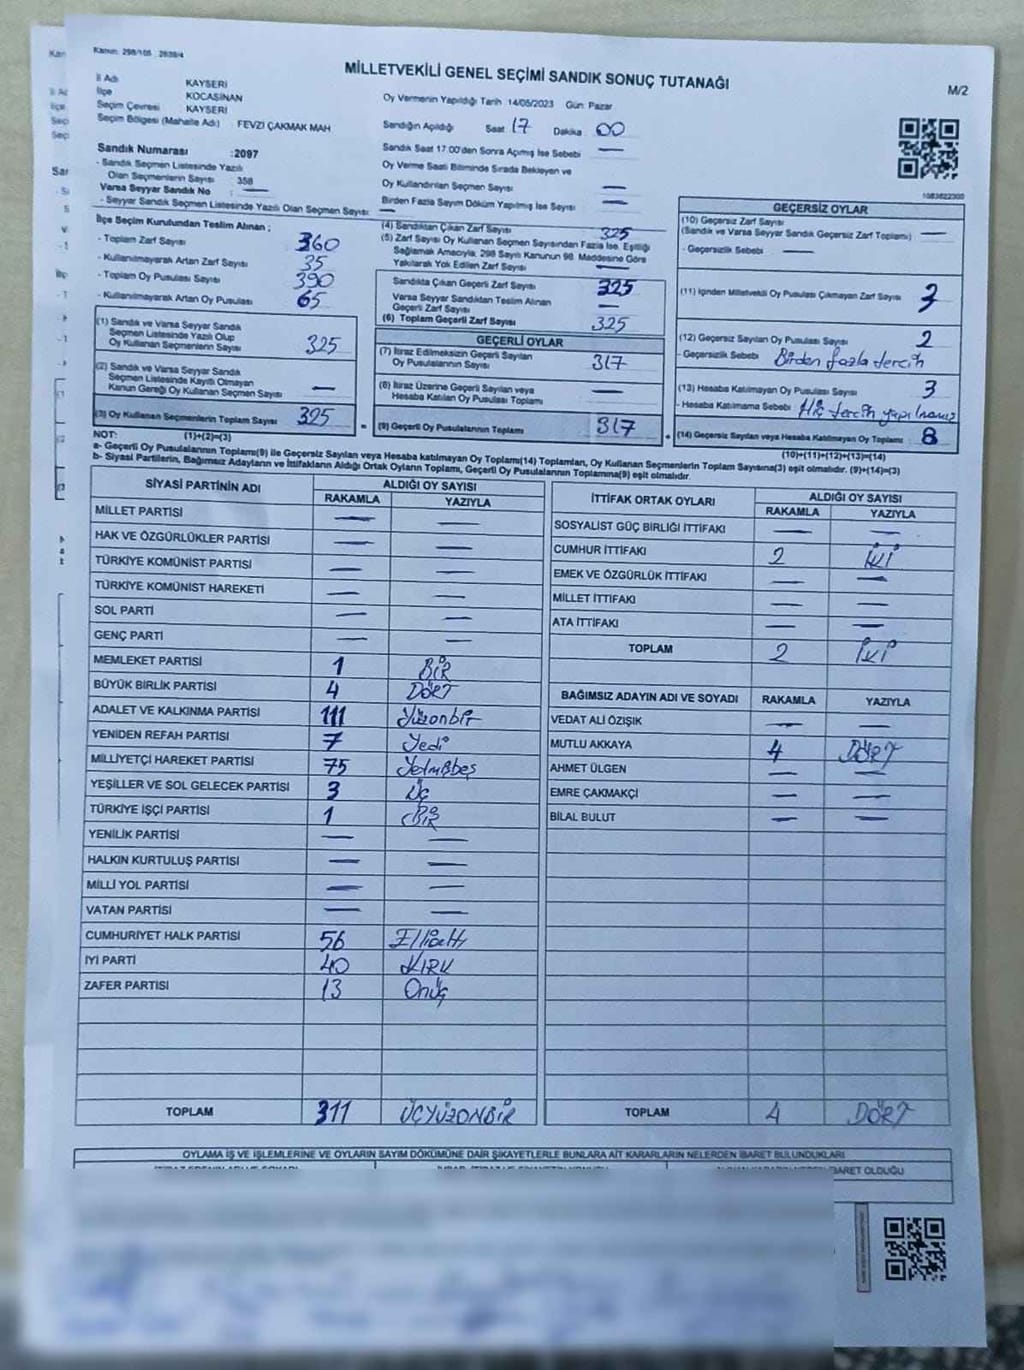 Kanun: 298/105 2839/4
MİLLETVEKİLİ GENEL SEÇİMİ SANDIK SONUÇ TUTANAĞI
M/2
İl Adı KAYSERİ
İlçe KOCASİNAN
Seçim Çevresi KAYSERİ
Seçim Bölgesi (Mahalle Adı) : FEVZİ ÇAKMAK MAH
Sandık Numarası :2097
- Sandık Seçmen Listesinde Yazılı
Olan Seçmenlerin Sayısı : 358
Varsa Seyyar Sandık No : —
- Seyyar Sandık Seçmen Listesinde Yazılı Olan Seçmen Sayısı: —
Oy Vermenin Yapıldığı Tarih :14/05/2023 Gün: Pazar
Sandığın Açıldığı Saat 17 Dakika 00
Sandık Saat 17:00'den Sonra Açımış İse Sebebi —
Oy Verme Saati Bitiminde Sırada Bekleyen ve
Oy Kullandırılan Seçmen Sayısı —
Birden Fazla Sayım Döküm Yapılmış İse Sayısı —
1083822300
İlçe Seçim Kurulundan Teslim Alınan ;
- Toplam Zarf Sayısı 360
- Kullanılmayarak Artan Zarf Sayısı 35
- Toplam Oy Pusulası Sayısı 390
- Kullanılmayarak Artan Oy Pusulası 65
(1) Sandık ve Varsa Seyyar Sandık
Seçmen Listesinde Yazılı Olup
Oy Kullanan Seçmenlerin Sayısı 325
(2) Sandık ve Varsa Seyyar Sandık
Seçmen Listesinde Kayıtlı Olmayan
Kanun Gereği Oy Kullanan Seçmen Sayısı —
(3) Oy Kullanan Seçmenlerin Toplam Sayısı 325
(4) Sandıktan Çıkan Zarf Sayısı 325
(5) Zarf Sayısı Oy Kullanan Seçmen Sayısından Fazla İse, Eşitliği
Sağlamak Amacıyla, 298 Sayılı Kanunun 98. Maddesine Göre
Yakılarak Yok Edilen Zarf Sayısı —
Sandıkta Çıkan Geçerli Zarf Sayısı 325
Varsa Seyyar Sandıktan Teslim Alınan
Geçerli Zarf Sayısı —
(6) Toplam Geçerli Zarf Sayısı 325
GEÇERLİ OYLAR
(7) İtiraz Edilmeksizin Geçerli Sayılan
Oy Pusulasının Sayısı 317
(8) İtiraz Üzerine Geçerli Sayılan veya
Hesaba Katılan Oy Pusulası Toplamı —
= (9) Geçerli Oy Pusulalarının Toplamı 317
GEÇERSİZ OYLAR
(10) Geçersiz Zarf Sayısı
(Sandık ve Varsa Seyyar Sandık Geçersiz Zarf Toplamı) —
- Geçersizlik Sebebi —
(11) İçinden Milletvekili Oy Pusulası Çıkmayan Zarf Sayısı 3
(12) Geçersiz Sayılan Oy Pusulası Sayısı 2
- Geçersizlik Sebebi Birden fazla tercih
(13) Hesaba Katılmayan Oy Pusulası Sayısı 3
- Hesaba Katılmama Sebebi Hiç tercih yapılmamış
+ (14) Geçersiz Sayılan veya Hesaba Katılmayan Oy Toplamı 8
NOT: (1)+(2)=(3) (10)+(11)+(12)+(13)=(14)
a- Geçerli Oy Pusulalarının Toplamı(9) ile Geçersiz Sayılan veya Hesaba katılmayan Oy Toplamı(14) Toplamları, Oy Kullanan Seçmenlerin Toplam Sayısına(3) eşit olmalıdır. (9)+(14)=(3)
b- Siyasi Partilerin, Bağımsız Adayların ve İttifakların Aldığı Ortak Oyların Toplamı, Geçerli Oy Pusulalarının Toplamına(9) eşit olmalıdır.
SİYASİ PARTİNİN ADI ALDIĞI OY SAYISI
RAKAMLA YAZIYLA
MİLLET PARTİSİ — —
HAK VE ÖZGÜRLÜKLER PARTİSİ — —
TÜRKİYE KOMÜNİST PARTİSİ — —
TÜRKİYE KOMÜNİST HAREKETİ — —
SOL PARTİ — —
GENÇ PARTİ — —
MEMLEKET PARTİSİ 1 BİR
BÜYÜK BİRLİK PARTİSİ 4 DÖRT
ADALET VE KALKINMA PARTİSİ 111 Yüzonbir
YENİDEN REFAH PARTİSİ 7 Yedi
MİLLİYETÇİ HAREKET PARTİSİ 75 Yetmişbeş
YEŞİLLER VE SOL GELECEK PARTİSİ 3 Üç
TÜRKİYE İŞÇİ PARTİSİ 1 BİR
YENİLİK PARTİSİ — —
HALKIN KURTULUŞ PARTİSİ — —
MİLLİ YOL PARTİSİ — —
VATAN PARTİSİ — —
CUMHURİYET HALK PARTİSİ 56 Ellialtı
İYİ PARTİ 40 KIRK
ZAFER PARTİSİ 13 Onüç
TOPLAM 311 ÜÇYÜZONBİR
İTTİFAK ORTAK OYLARI ALDIĞI OY SAYISI
RAKAMLA YAZIYLA
SOSYALİST GÜÇ BİRLİĞİ İTTİFAKI — —
CUMHUR İTTİFAKI 2 İki
EMEK VE ÖZGÜRLÜK İTTİFAKI — —
MİLLET İTTİFAKI — —
ATA İTTİFAKI — —
TOPLAM 2 İki
BAĞIMSIZ ADAYIN ADI VE SOYADI RAKAMLA YAZIYLA
VEDAT ALİ ÖZIŞIK — —
MUTLU AKKAYA 4 DÖRT
AHMET ÜLGEN — —
EMRE ÇAKMAKÇİ — —
BİLAL BULUT — —
TOPLAM 4 DÖRT
OYLAMA İŞ VE İŞLEMLERİNE VE OYLARIN SAYIM DÖKÜMÜNE DAİR ŞİKAYETLERLE BUNLARA AİT KARARLARIN NELERDEN İBARET BULUNDUKLARI
İBARET OLDUĞU